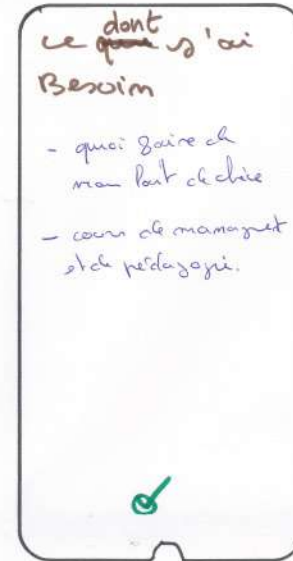 ce dont j'ai
Besoin
- quoi faire de
mon
- cours de managment
et de pédagogie.